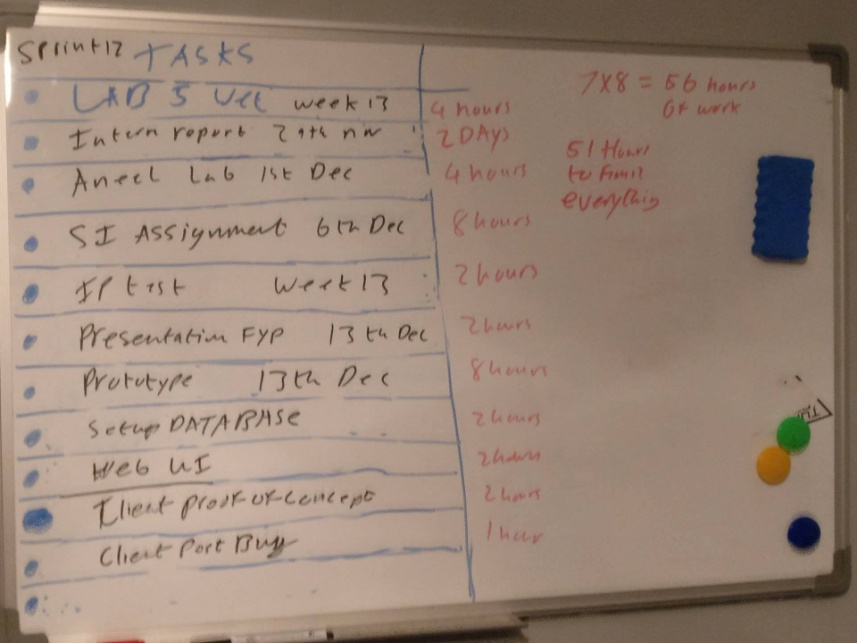 Sprint 12 TASKS
LAB 5 week 13 4 hours
Intern report 29th nov 2 DAYS
Lab 1st Dec 4 hours
SI Assignment 6th Dec 8 hours
IP test Week 13 2 hours
Presentation FYP 13th Dec 2 hours
Prototype 13th Dec 8 hours
Setup DATABASE 2 hours
Web UI 2 hours
Client proof of concept 2 hours
Client Port Bugg 1 hour
7x8 = 56 hours
of work
51 Hours
to finish
everything